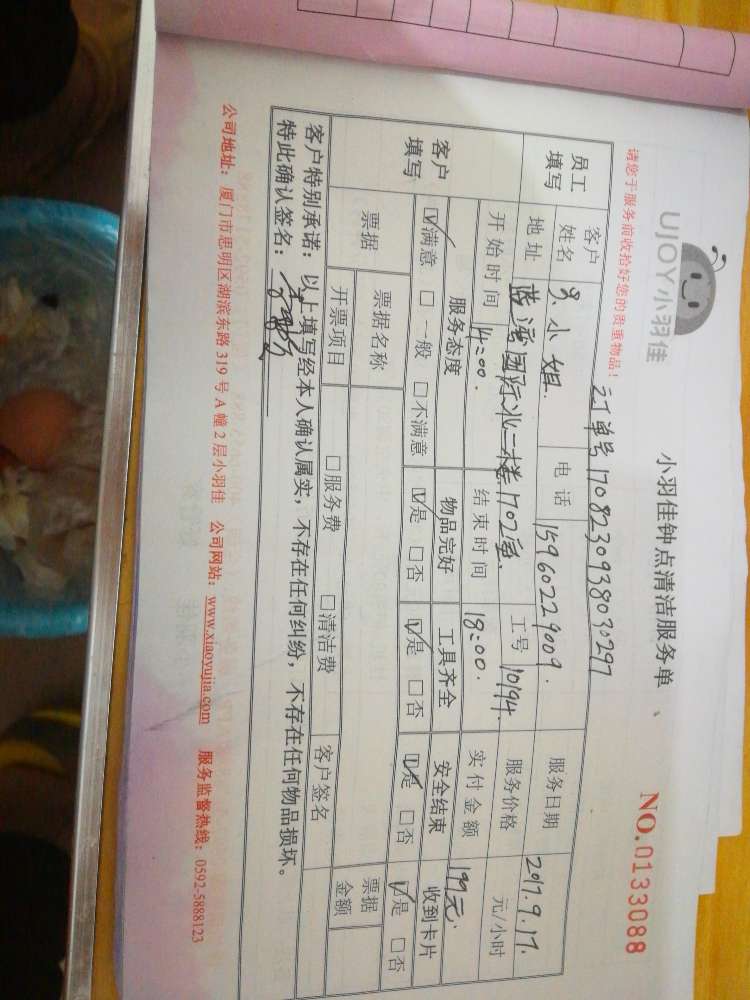 UJOY小羽佳
小羽佳钟点清洁服务单
NO.0133088
请您于服务前收拾好您的贵重物品！
订单号170823093803029​7
员工填写
客户姓名 吴小姐. 电话 15960229009. 服务日期 2017.9.17.
地址 蓝湾国际北二梯1702室. 工号 10194. 服务价格 元/小时
开始时间 14:00. 结束时间 18:00. 实付金额 199元.
客户填写
服务态度 物品完好 工具齐全 安全结束 收到卡片
☑满意 □一般 □不满意 ☑是 □否 ☑是 □否 ☑是 □否 ☑是 □否
票据 票据名称 票据金额
开票项目 □服务费 □清洁费 客户签名
客户特别承诺：以上填写经本人确认属实，不存在任何纠纷，不存在任何物品损坏。
特此确认签名：
公司地址：厦门市思明区湖滨东路319号A幢2层小羽佳 公司网站：www.xiaoyujia.com 服务监督热线：0592-5888123